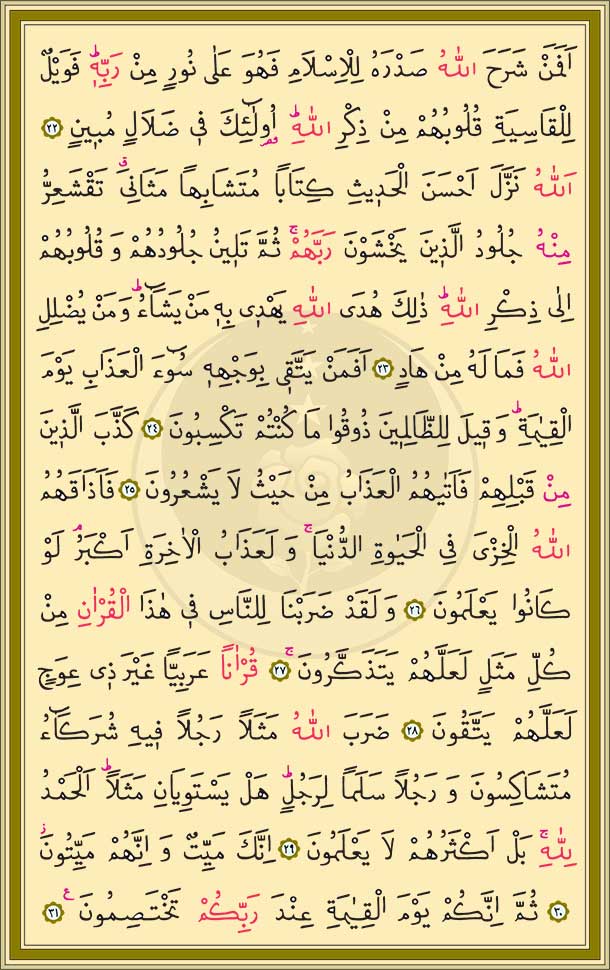 اَفَمَنْ شَرَحَ اللّٰهُ صَدْرَهُ لِلْاِسْلَامِ فَهُوَ عَلٰى نُورٍ مِنْ رَبِّه۪ۜ فَوَيْلٌ
لِلْقَاسِيَةِ قُلُوبُهُمْ مِنْ ذِكْرِ اللّٰهِۜ اُو۬لٰٓئِكَ ف۪ي ضَلَالٍ مُب۪ينٍ ﴿٢٢﴾
اَللّٰهُ نَزَّلَ اَحْسَنَ الْحَد۪يثِ كِتَاباً مُتَشَابِهاً مَثَانِيَۗ تَقْشَعِرُّ
مِنْهُ جُلُودُ الَّذ۪ينَ يَخْشَوْنَ رَبَّهُمْۚ ثُمَّ تَل۪ينُ جُلُودُهُمْ وَقُلُوبُهُمْ
اِلٰى ذِكْرِ اللّٰهِۜ ذٰلِكَ هُدَى اللّٰهِ يَهْد۪ي بِه۪ مَنْ يَشَٓاءُۜ وَمَنْ يُضْلِلِ
اللّٰهُ فَمَا لَهُ مِنْ هَادٍ ﴿٢٣﴾ اَفَمَنْ يَتَّق۪ي بِوَجْهِه۪ سُٓوءَ الْعَذَابِ يَوْمَ
الْقِيٰمَةِۜ وَق۪يلَ لِلظَّالِم۪ينَ ذُوقُوا مَا كُنْتُمْ تَكْسِبُونَ ﴿٢٤﴾ كَذَّبَ الَّذ۪ينَ
مِنْ قَبْلِهِمْ فَاَتٰيهُمُ الْعَذَابُ مِنْ حَيْثُ لَا يَشْعُرُونَ ﴿٢٥﴾ فَاَذَاقَهُمُ
اللّٰهُ الْخِزْيَ فِي الْحَيٰوةِ الدُّنْيَاۚ وَلَعَذَابُ الْاٰخِرَةِ اَكْبَرُۢ لَوْ
كَانُوا يَعْلَمُونَ ﴿٢٦﴾ وَلَقَدْ ضَرَبْنَا لِلنَّاسِ ف۪ي هٰذَا الْقُرْاٰنِ مِنْ
كُلِّ مَثَلٍ لَعَلَّهُمْ يَتَذَكَّرُونَۚ ﴿٢٧﴾ قُرْاٰناً عَرَبِياًّ غَيْرَ ذ۪ي عِوَجٍ
لَعَلَّهُمْ يَتَّقُونَ ﴿٢٨﴾ ضَرَبَ اللّٰهُ مَثَلاً رَجُلاً ف۪يهِ شُرَكَٓاءُ
مُتَشَاكِسُونَ وَرَجُلاً سَلَماً لِرَجُلٍۜ هَلْ يَسْتَوِيَانِ مَثَلاًۜ اَلْحَمْدُ
لِلّٰهِۚ بَلْ اَكْثَرُهُمْ لَا يَعْلَمُونَ ﴿٢٩﴾ اِنَّكَ مَيِّتٌ وَاِنَّهُمْ مَيِّتُونَۘ
﴿٣٠﴾ ثُمَّ اِنَّكُمْ يَوْمَ الْقِيٰمَةِ عِنْدَ رَبِّكُمْ تَخْتَصِمُونَ۟ ﴿٣١﴾